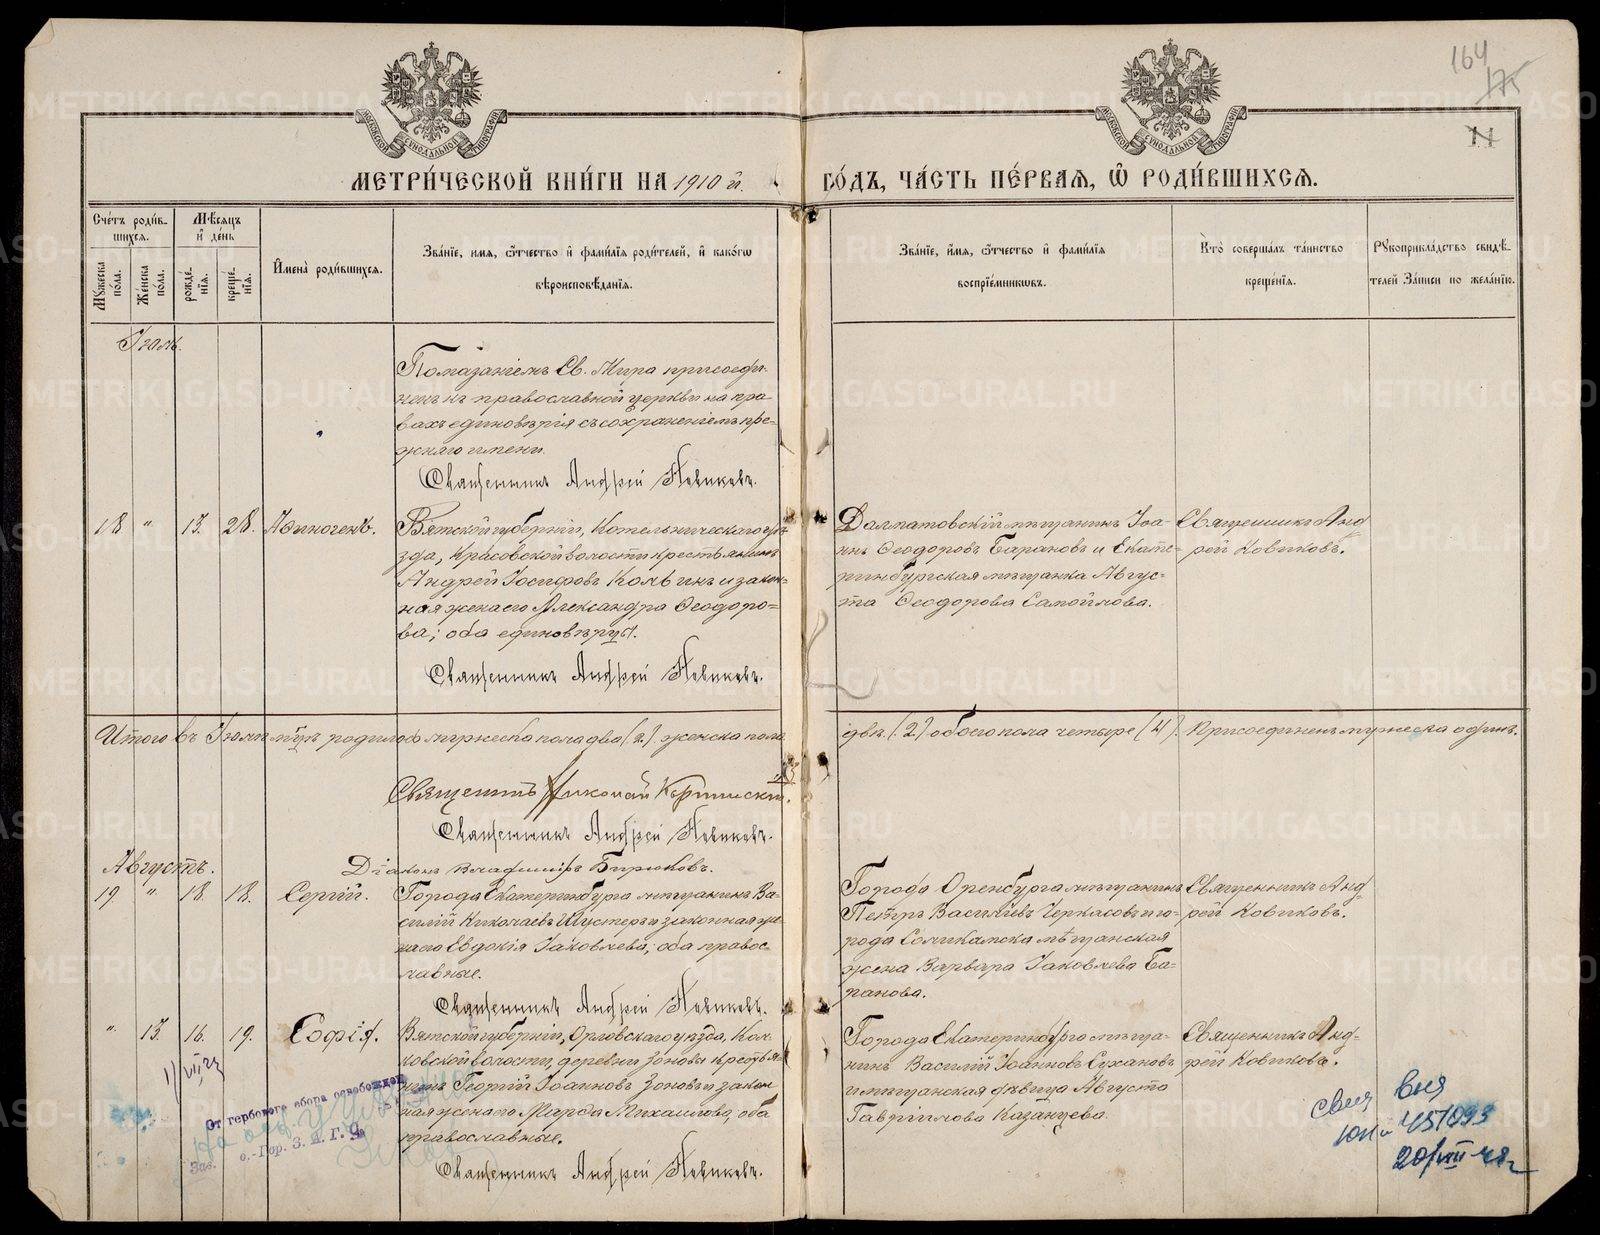 164
175
11
МОСКОВСКОЙ СѴНОДАЛЬНОЙ ТИПОГРАФІИ
МОСКОВСКОЙ СѴНОДАЛЬНОЙ ТИПОГРАФІИ
МЕТРИ́ЧЕСКОЙ КНИ́ГИ НА 1910 й. ГО́ДЪ, ЧА́СТЬ ПЕ́РВАЯ, Ѡ РОДИ́ВШИХСЯ.
Сче́тъ роди́в-
шихся.
Мꙋжеска по́ла.
Же́нска по́ла.
Мѣ́сяцъ
и де́нь
рожде́нїя.
креще́нїя.
Имена̀ роди́вшихся.
Зва́нїе, и́мя, ѻ́тчество и фами́лїя роди́телей, и како́гѡ
вѣроисповѣ́данїя.
Зва́нїе, и́мя, ѻ́тчество и фами́лїя
воспрїе́мникѡвъ.
Кто̀ соверша́лъ та́инство
креще́нїя.
Рꙋкоприкла́дство свидѣ́-
телей За́писи по жела́нїю.
Іюль.
Помазаніемъ Св. Мира присоеди-
ненъ къ православной церкви на пра-
вахъ единовѣрія съ сохраненіемъ пре-
жняго имени.
Священникъ Андрей Новиковъ.
18 " 15. 28. Авиногенъ.
Вятской губерніи, Котельническаго уѣ-
зда, Красовской волости крестьянинъ
Андрей Іосифовъ Колминъ и закон-
ная жена его Александра Ѳеодоро-
ва; оба единовѣрцы.
Священникъ Андрей Новиковъ.
Далматовскій мѣщанинъ Іоа-
ннъ Ѳеодоровъ Барановъ и Екате-
ринбургская мѣщанка Авгус-
та Ѳеодорова Самойлова.
Священникъ Анд
рей Новиковъ.
Итого въ Іюлѣ м-цѣ родилось мужеска пола два (2) женска пола
двѣ (2) обоего пола четыре (4). Присоединенъ мужеска одинъ.
Священникъ Николай
Священникъ Андрей Новиковъ.
Діаконъ Владиміръ Бирюковъ.
Августъ.
19 " 18. 18. Сергій.
Города Екатеринбурга мѣщанинъ Ва-
силій Николаевъ Шустеръ и законная же-
на его Евдокія Іаковлева; оба правос-
лавные.
Священникъ Андрей Новиковъ.
Города Оренбурга мѣщанинъ
Петръ Василіевъ Черкасовъ и го-
рода Соликамска мѣщанская
жена Варвара Іаковлева Ба-
ранова.
Священникъ Анд-
рей Новиковъ.
" 15. 16. 19. Софія.
Вятской губерніи, Орловскаго уѣзда,
волости, деревни Зоновы крестья-
нинъ Георгій Іоанновъ Зоновъ и закон
ная жена его Марѳа Михаилова, оба
православные.
Священникъ Андрей Новиковъ.
Города Екатеринбурга мѣща-
нинъ Василій Іоанновъ Сухановъ
и мѣщанская дѣвица Августа
Гавріилова Казанцева.
Священникъ Анд-
рей Новиковъ.
От гербового сбора освобожден
Зав. о.-Гор. З. А. Г. С.
457093
20/VIII-48 г
METRIKI.GASO-URAL.RU